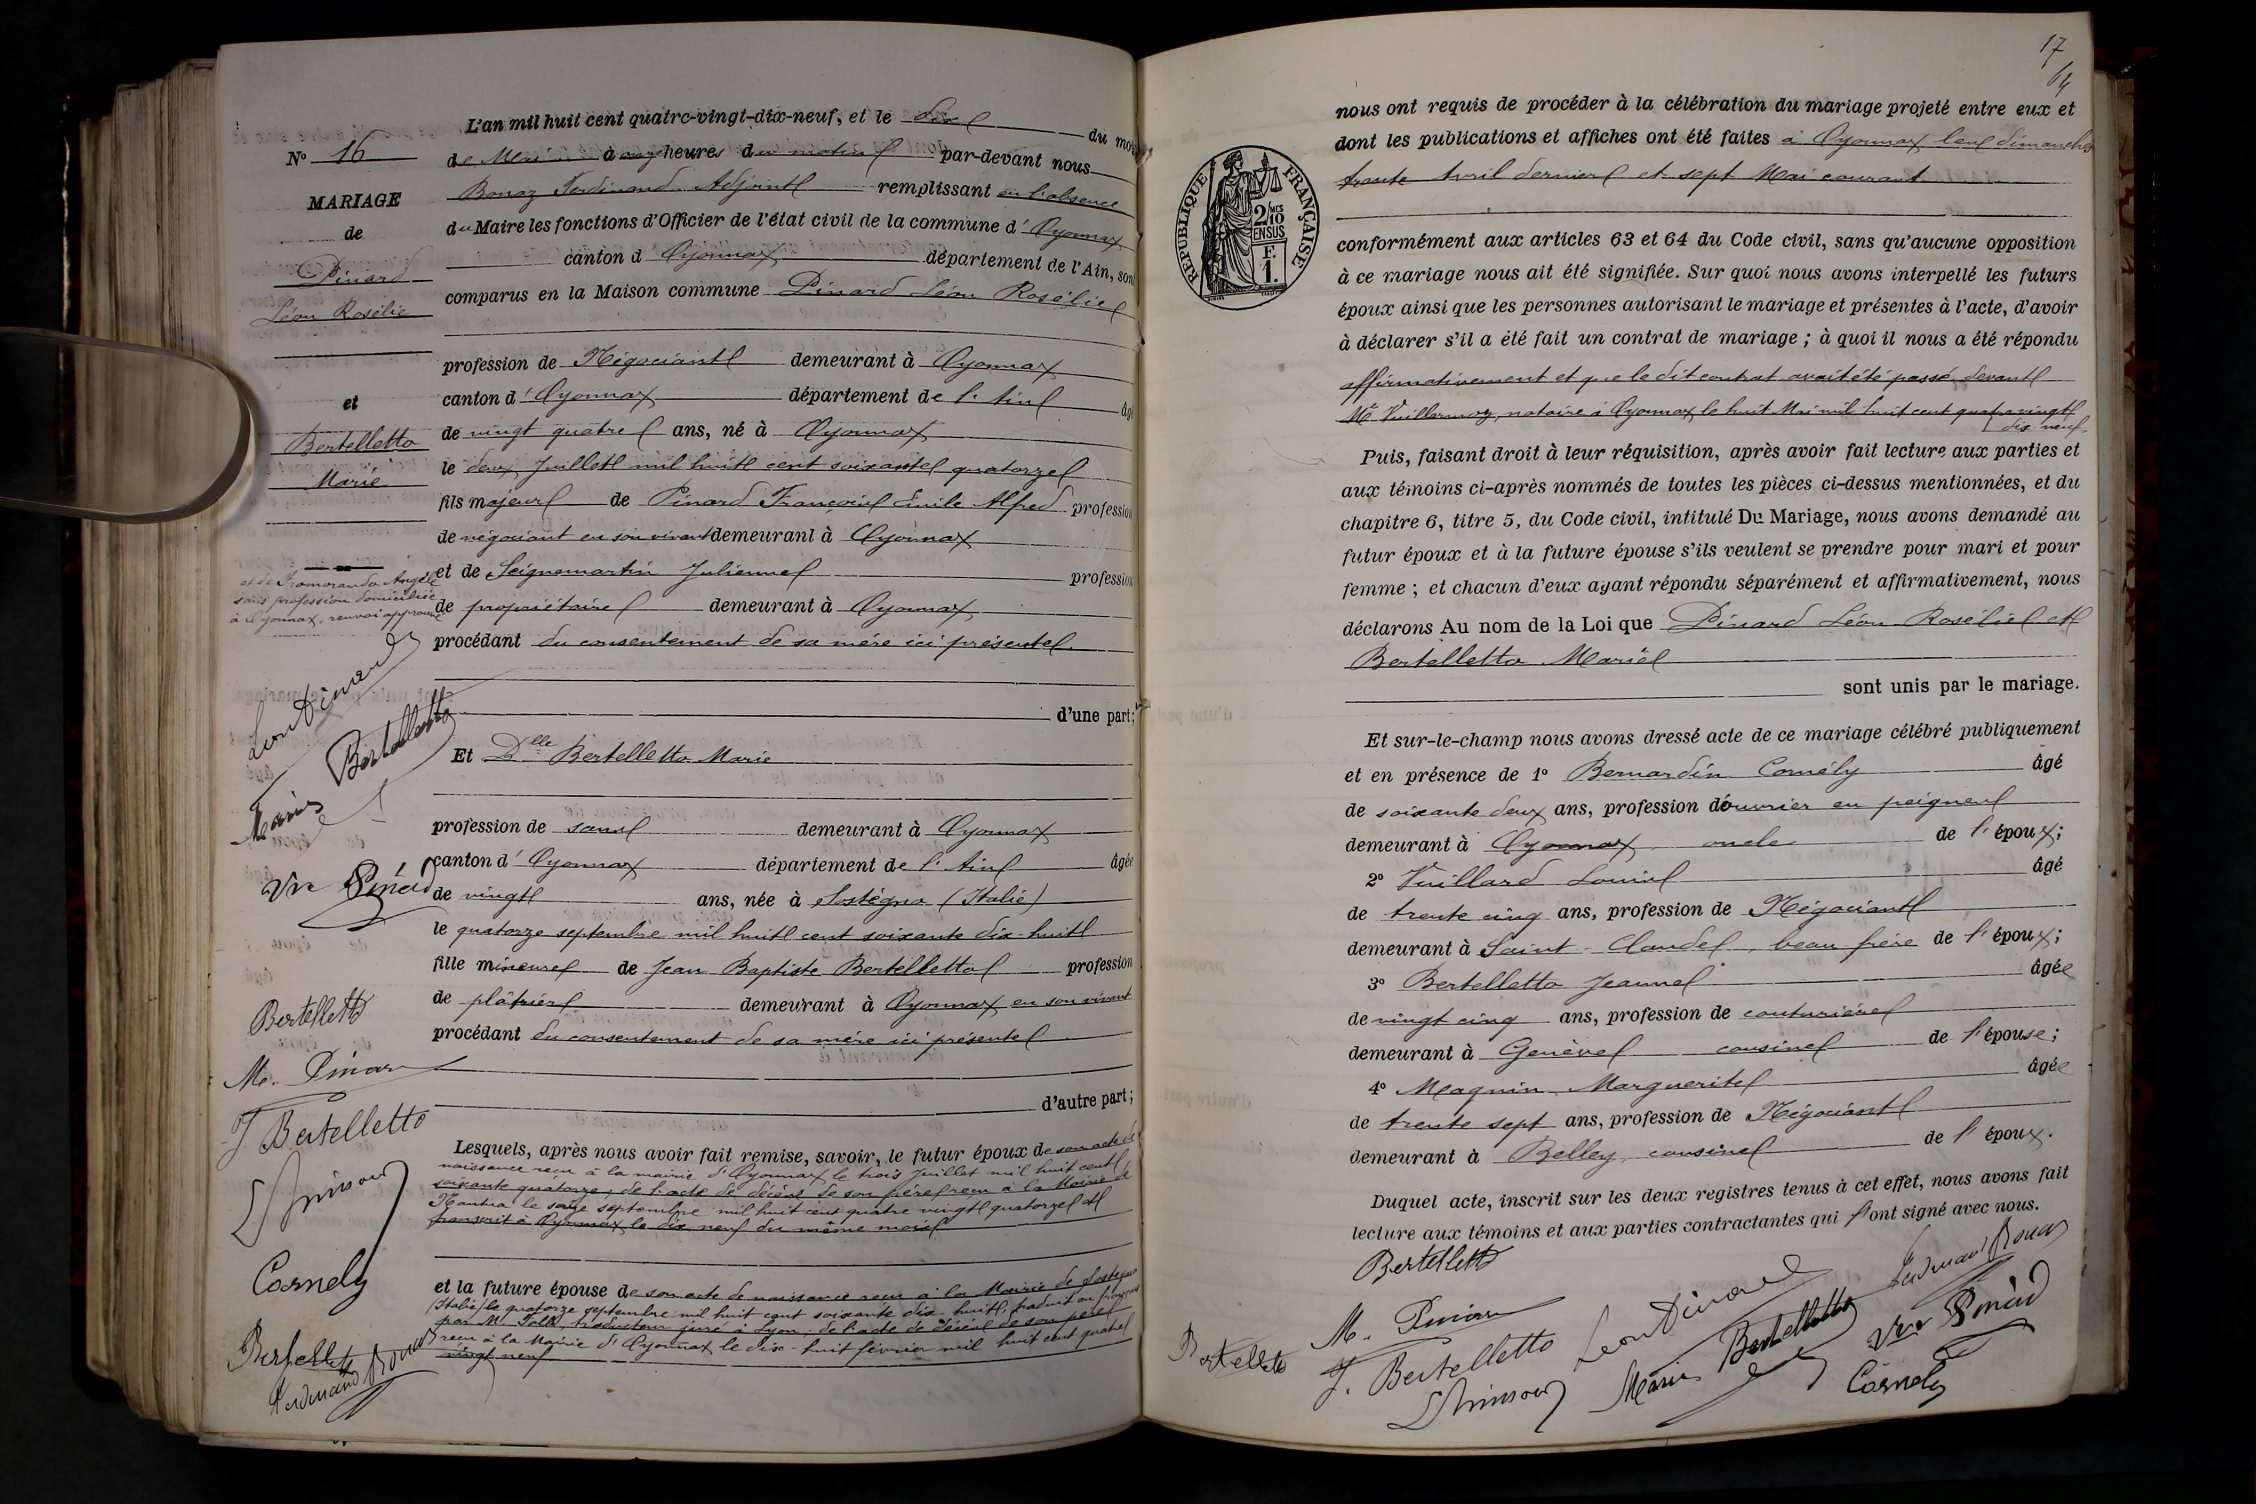 L'an mil huit cent quatre-vingt-dix-neuf, et le dix du mois
N° 16
de Mai à onze heures du matin par-devant nous
Bonaz Ferdinand Adjoint remplissant en l'absence
MARIAGE
de
du Maire les fonctions d'Officier de l'état civil de la commune d'Oyonnax
canton d'Oyonnax département de l'Ain, sont
Pinard
Léon Rosélie
comparus en la Maison commune Pinard Léon Rosélie
profession de Négociant demeurant à Oyonnax
et
canton d'Oyonnax département de l'Ain âgé
Bertelletto
Marie
de vingt quatre ans, né à Oyonnax
le deux Juillet mil huit cent soixante quatorze
fils majeur de Pinard François Emile Alfred profession
de négociant en son vivant demeurant à Oyonnax
et de Seignemartin Julienne profession
et de Angèle
sans profession domiciliée
à Oyonnax, renvoi approuvé
de propriétaire demeurant à Oyonnax
procédant du consentement de sa mère ici présente
d'une part;
Léon Pinard
Marie Bertelletto
Et Dlle Bertelletto Marie
profession de sans demeurant à Oyonnax
canton d'Oyonnax département de l'Ain âgée
Vve Pinard
de vingt ans, née à Sostégno (Italie)
le quatorze septembre mil huit cent soixante dix-huit
fille mineure de Jean Baptiste Bertelletto profession
de plâtrier demeurant à Oyonnax en son vivant
procédant du consentement de sa mère ici présente
d'autre part;
Bertelletto
M. Pinard
J. Bertelletto
Cornely
Bertelletto
Ferdinand Bonaz
Lesquels, après nous avoir fait remise, savoir, le futur époux de son acte de
naissance reçu à la mairie d'Oyonnax le trois Juillet mil huit cent
soixante quatorze; de l'acte de décès de son père reçu à la Mairie de
Nantua le seize septembre mil huit cent quatre vingt quatorze et
transcrit à Oyonnax le dix neuf du même mois
et la future épouse de son acte de naissance reçu à la Mairie de Sostegno
(Italie) le quatorze septembre mil huit cent soixante dix-huit, traduit en français
par Mr traducteur juré à Lyon; de l'acte de décès de son père
reçu à la Mairie d'Oyonnax le dix-huit février mil huit cent quatre
vingt neuf
17
64
nous ont requis de procéder à la célébration du mariage projeté entre eux et
dont les publications et affiches ont été faites à Oyonnax les dimanches
trente Avril dernier et sept Mai courant
REPUBLIQUE FRANÇAISE
2/10 MES
EN SUS
F.
1.
conformément aux articles 63 et 64 du Code civil, sans qu'aucune opposition
à ce mariage nous ait été signifiée. Sur quoi nous avons interpellé les futurs
époux ainsi que les personnes autorisant le mariage et présentes à l'acte, d'avoir
à déclarer s'il a été fait un contrat de mariage; à quoi il nous a été répondu
affirmativement et que le dit contrat avait été passé devant
Me Vuillermoz, notaire à Oyonnax le huit Mai mil huit cent quatre vingt
dix-neuf.
Puis, faisant droit à leur réquisition, après avoir fait lecture aux parties et
aux témoins ci-après nommés de toutes les pièces ci-dessus mentionnées, et du
chapitre 6, titre 5, du Code civil, intitulé Du Mariage, nous avons demandé au
futur époux et à la future épouse s'ils veulent se prendre pour mari et pour
femme; et chacun d'eux ayant répondu séparément et affirmativement, nous
déclarons Au nom de la Loi que Pinard Léon Rosélie et
Bertelletto Marie
sont unis par le mariage.
Et sur-le-champ nous avons dressé acte de ce mariage célébré publiquement
et en présence de 1° Bernardin Cornély âgé
de soixante deux ans, profession d'ouvrier en peignes
demeurant à Oyonnax oncle de l'époux;
2° Vuillard Louis âgé
de trente cinq ans, profession de Négociant
demeurant à Saint-Claude, beau frère de l'époux;
3° Bertelletto Jeanne âgée
de vingt cinq ans, profession de couturière
demeurant à Genève cousine de l'épouse;
4° Magnin Marguerite âgée
de trente sept ans, profession de Négociant
demeurant à Belley, cousine de l'époux.
Duquel acte, inscrit sur les deux registres tenus à cet effet, nous avons fait
lecture aux témoins et aux parties contractantes qui l'ont signé avec nous.
Bertelletto
Ferdinand Bonaz
M. Pinard
Léon Pinard
Vve Pinard
Bertelletto
J. Bertelletto
Marie Bertelletto
Cornely